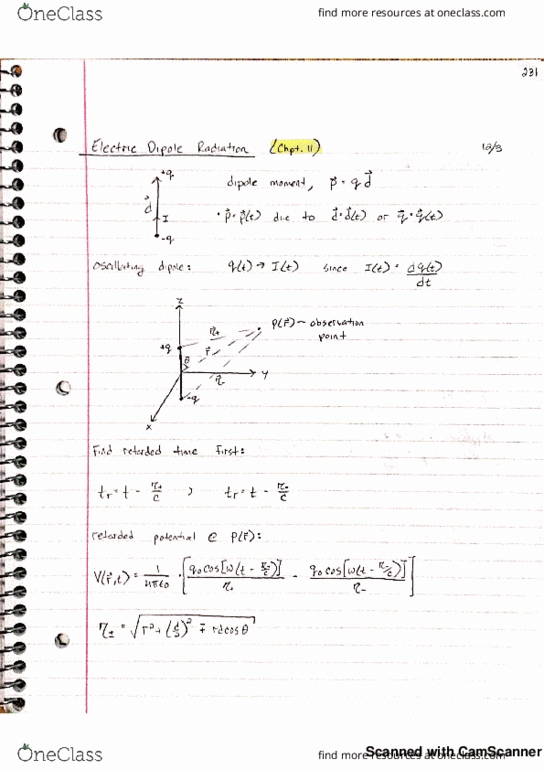 OneClass
find more resources at oneclass.com
231
Electric Dipole Radiation (Chpt. 11)
10/3
+q
d
I
-q
dipole moment, p⃗ = q d⃗
• p⃗ = p⃗(t) due to d⃗ = d⃗(t) or q⃗ = q⃗(t)
oscillating dipole: q(t) → I(t) since I(t) = dq(t)/dt
z
+q
η+
r⃗
P(r⃗) ~ observation
point
θ
η-
y
-q
x
Find retarded time first:
tr = t - η+/c , tr = t - η-/c
retarded potential @ P(r⃗):
V(r⃗,t) = 1/4πε0 · [q0cos[ω(t - η+/c)]/η+ - q0cos[ω(t - η-/c)]/η-]
η± = √(r² + (d/2)² ∓ rdcosθ)
OneClass
find more resources at oneclass.com
Scanned with CamScanner